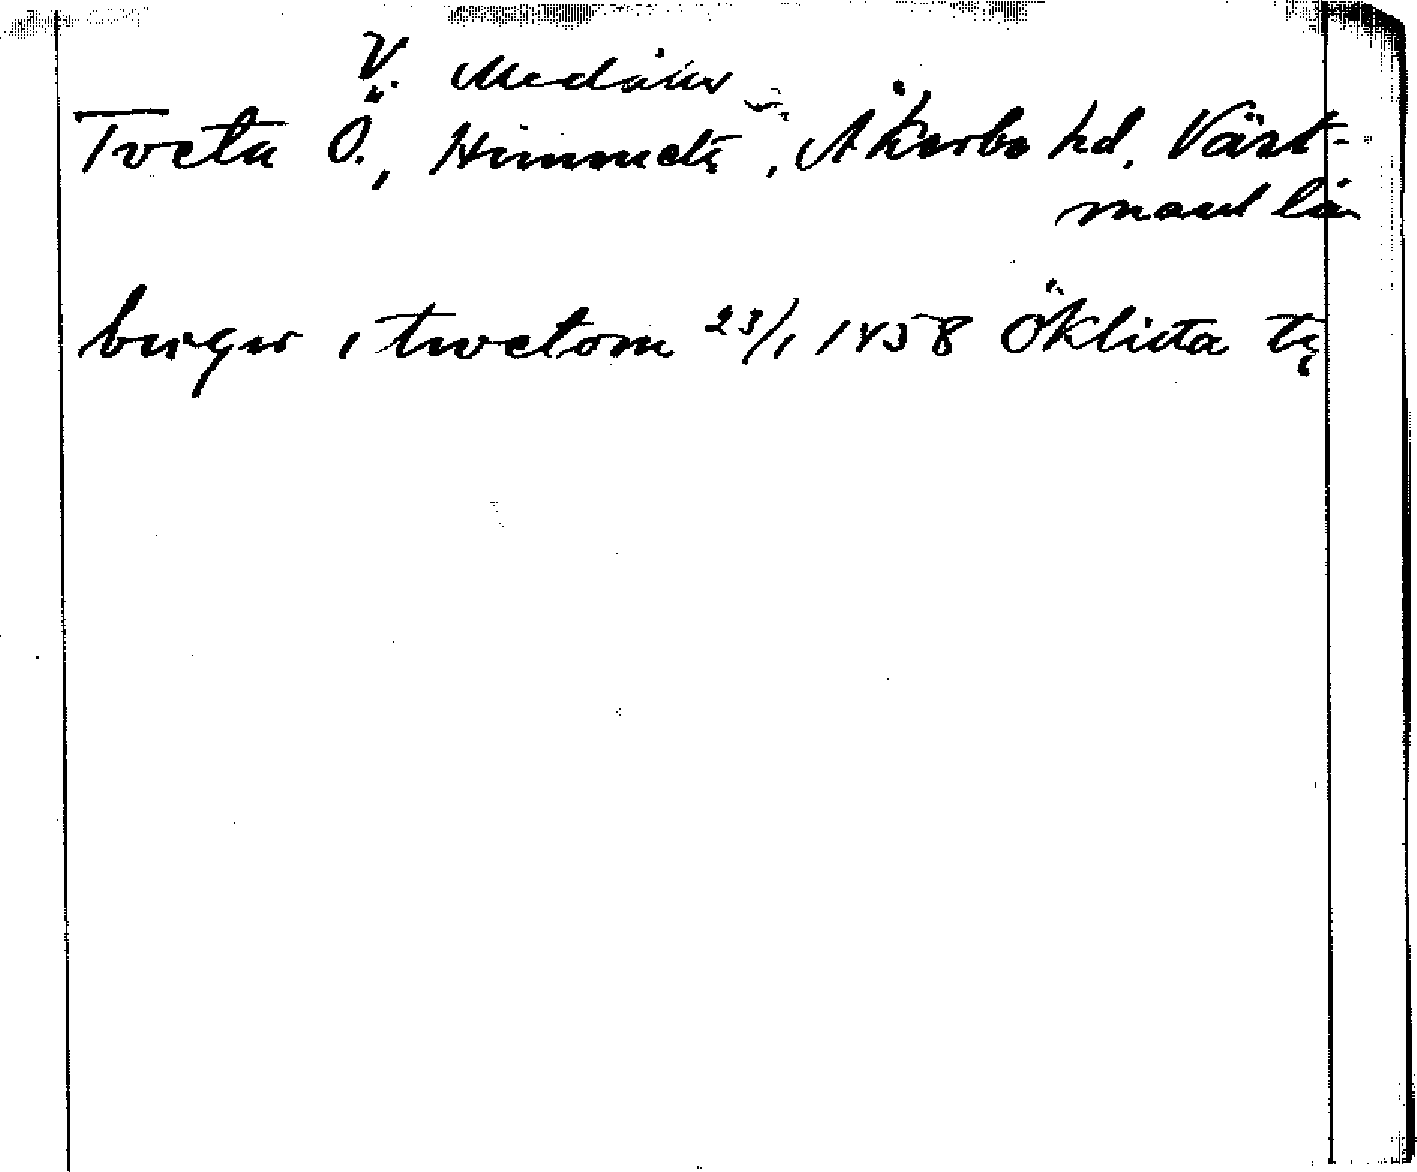 V. Medåker
Tveta Ö., Himmeta, Åkerbo hd. Väst-
manl län
birger i twetom 23/1 1458 Öklista tz